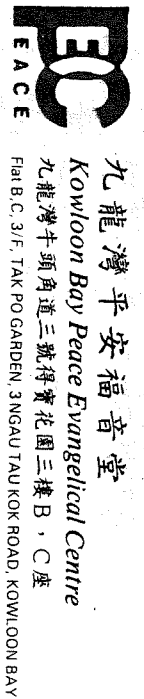 PEC
PEACE
九龍灣平安福音堂
Kowloon Bay Peace Evangelical Centre
九龍灣牛頭角道三號得寶花園三樓B，C座
Flat B,C, 3/F, TAK PO GARDEN, 3 NGAU TAU KOK ROAD, KOWLOON BAY